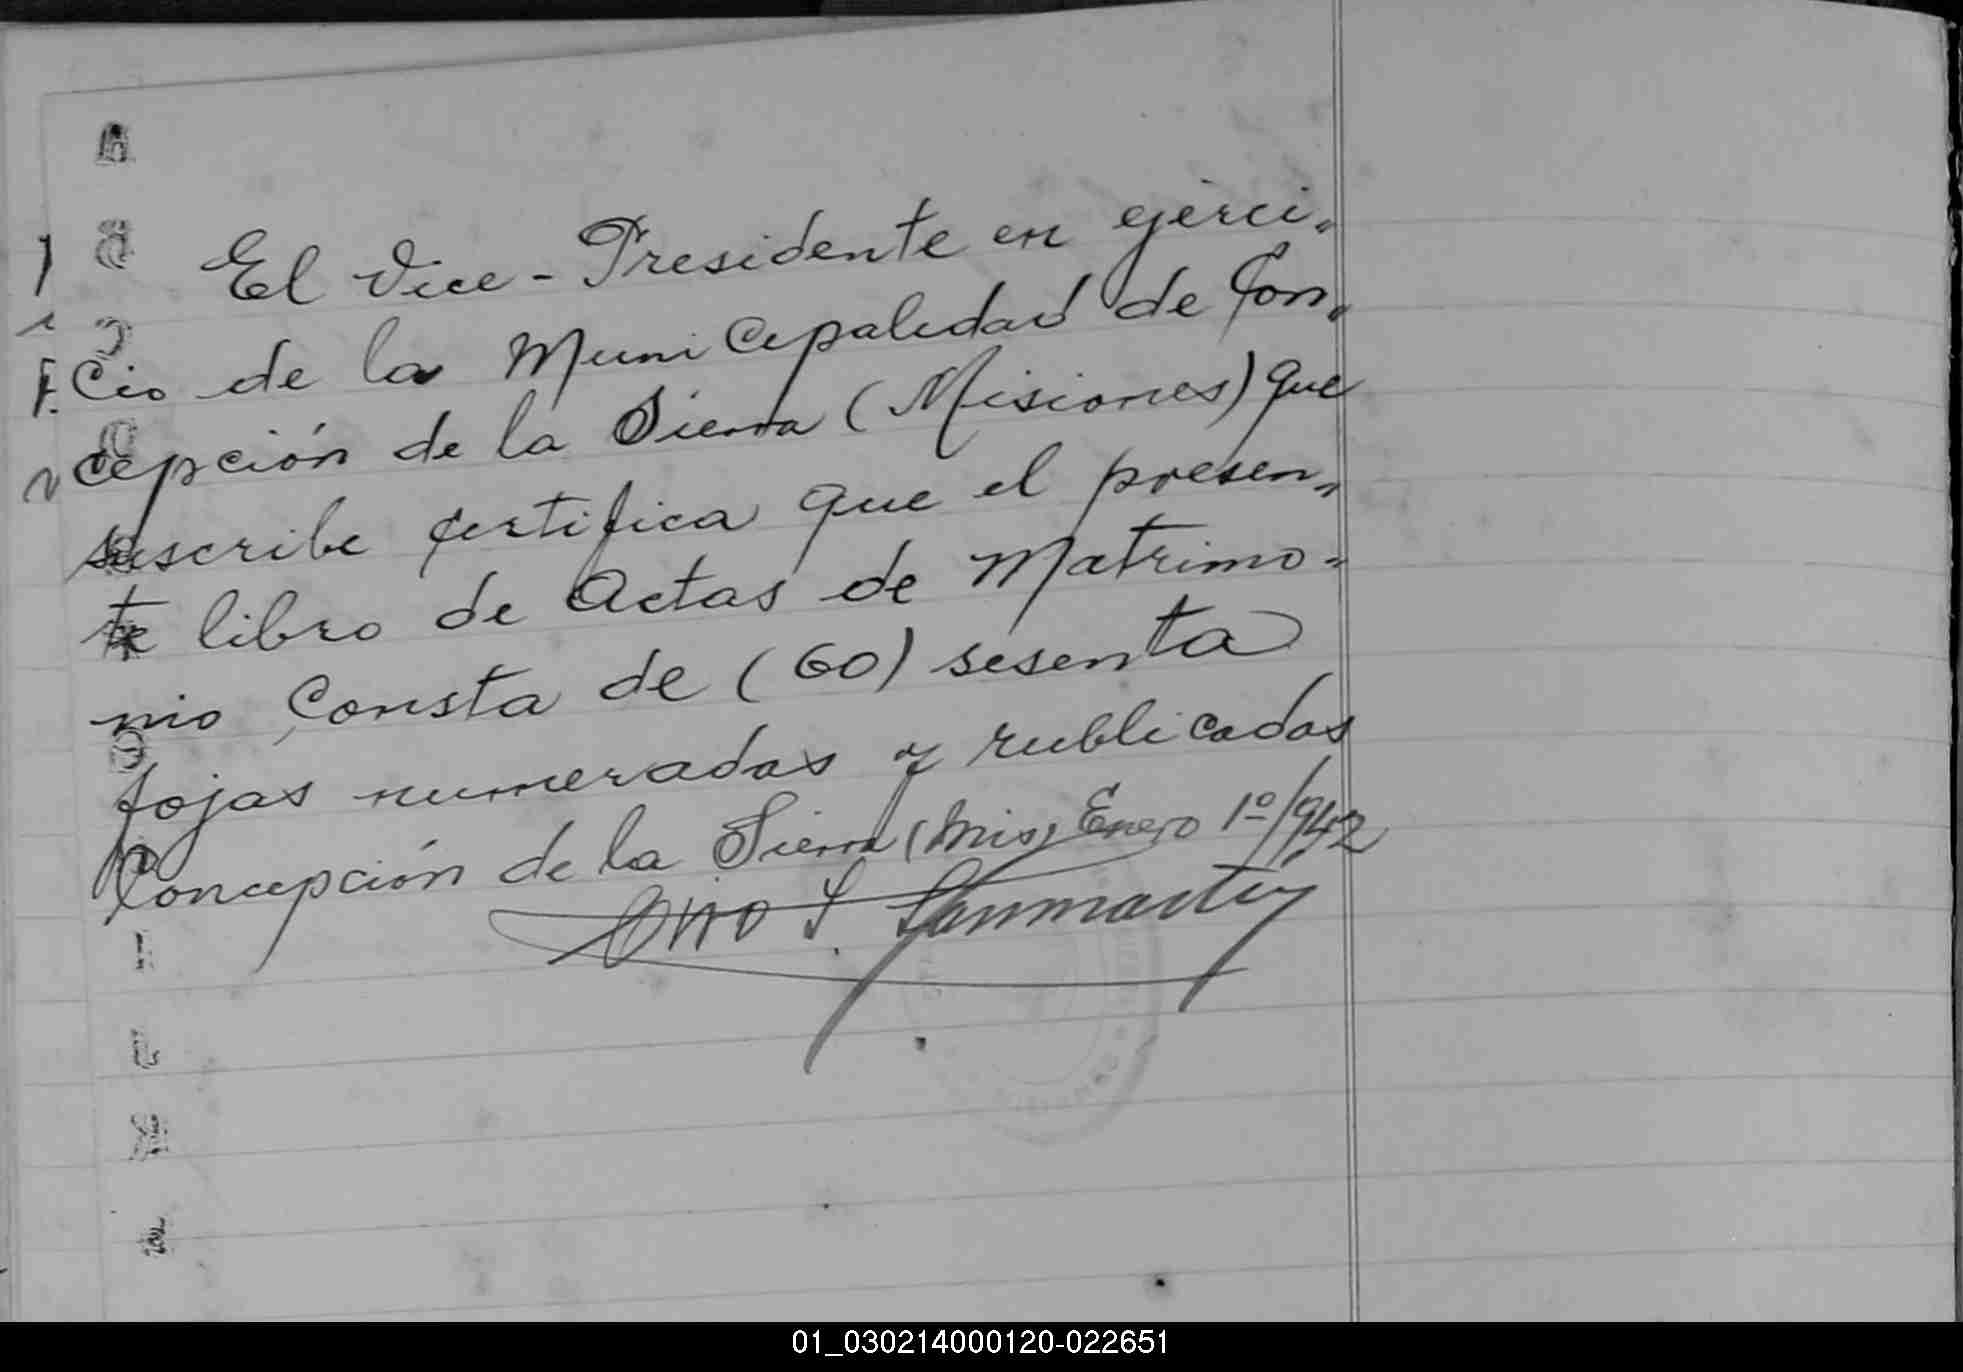 El Vice-Presidente en ejerci-
cio de la Municipalidad de Con-
cepción de la Sierra (Misiones) que
suscribe certifica que el presen-
te libro de Actas de Matrimo-
nio, Consta de (60) sesenta
fojas numeradas y rublicadas
Concepción de la Sierra (Mis) Enero 1º/942
Sanmartin
01_030214000120-022651